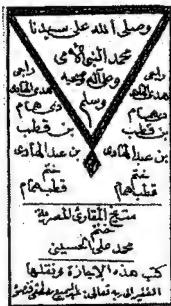 وصلى الله على سيدنا
محمد النبي الأمي
وعلى آله وصحبه
وسلم
راجي
همام
بن قطب
بن عبد الهادي
ختم
قطب همام
راجي
همام
بن قطب
بن عبد الهادي
ختم
قطب همام
المقارئ المصرية
ختم
محمد علي الحسيني
كتب هذه الاجازة ونقلها
الفقير إليه تعالى